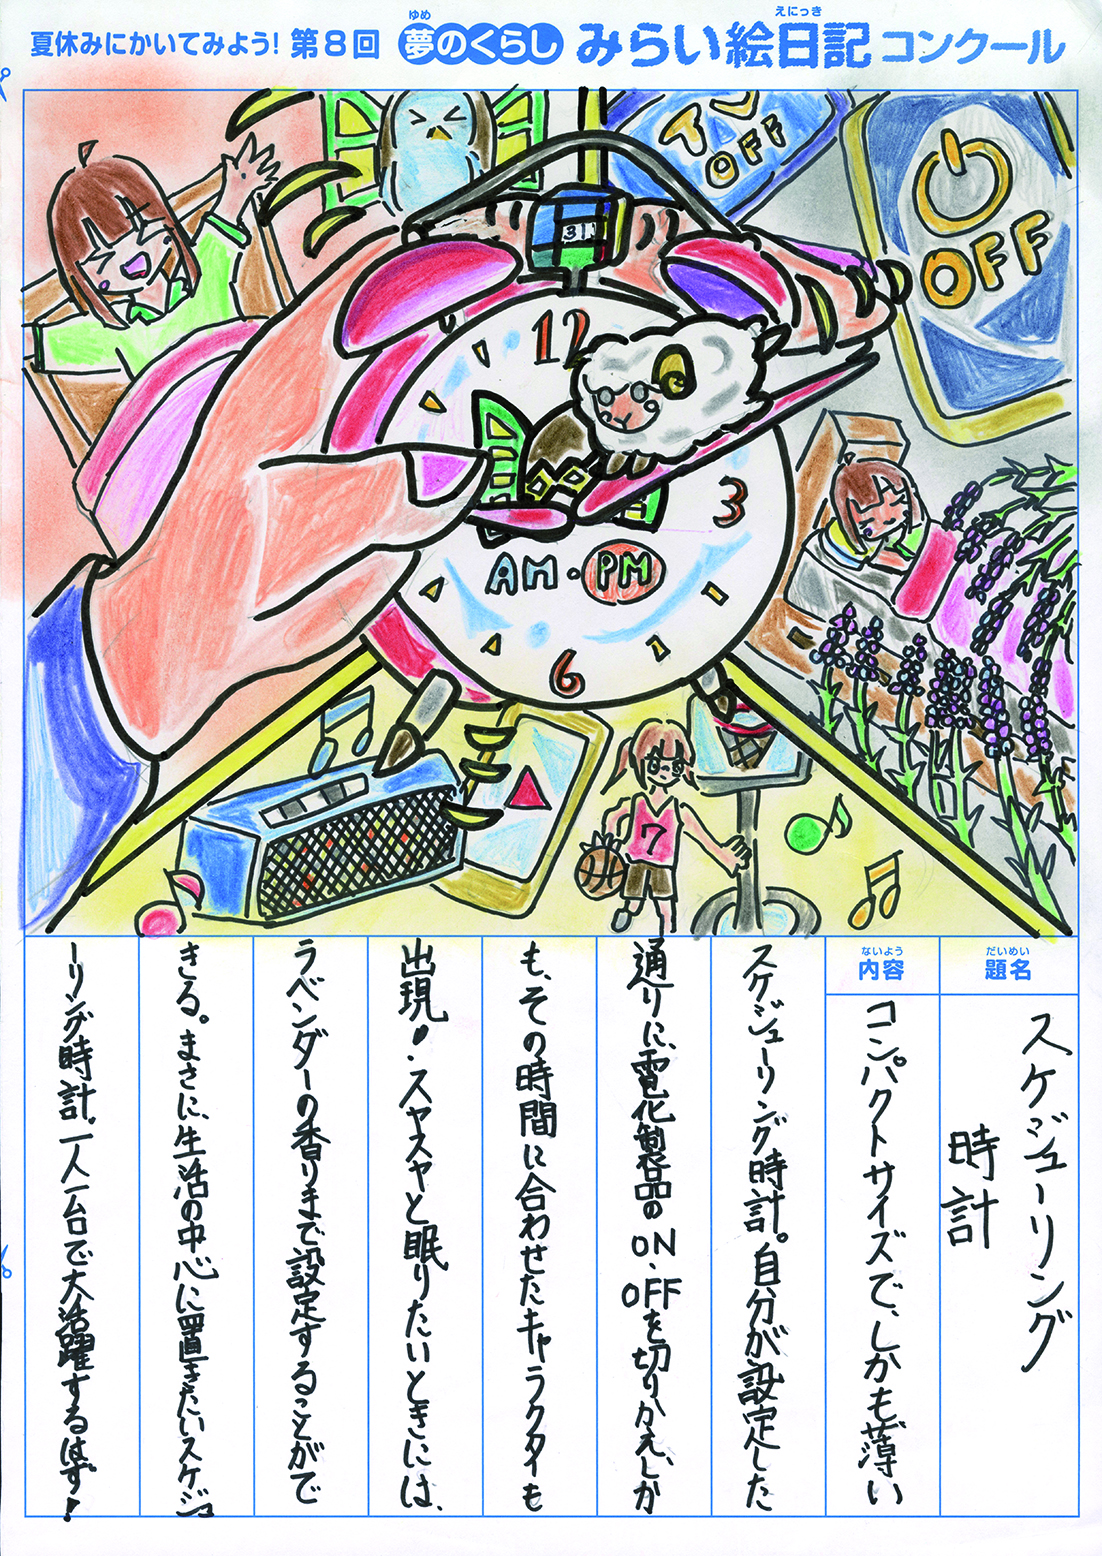 夏休みにかいてみよう! 第8回 夢のくらし みらい絵日記 コンクール
ゆめ
えにっき
TV OFF
OFF
31
12
3
6
AM・PM
7
だいめい
題名
スケジューリング
時計
ないよう
内容
コンパクトサイズで、しかも薄い
スケジューリング時計。自分が設定した
通りに、電化製品のON、OFFを切りかえ、しか
も、その時間に合わせたキャラクタイも
出現!スヤスヤと眠りたいときには、
ラベンダーの香りまで設定することがで
きる。まさに、生活の中心に置きたいスケジュ
ーリング時計。一人一台で大活躍するはず!